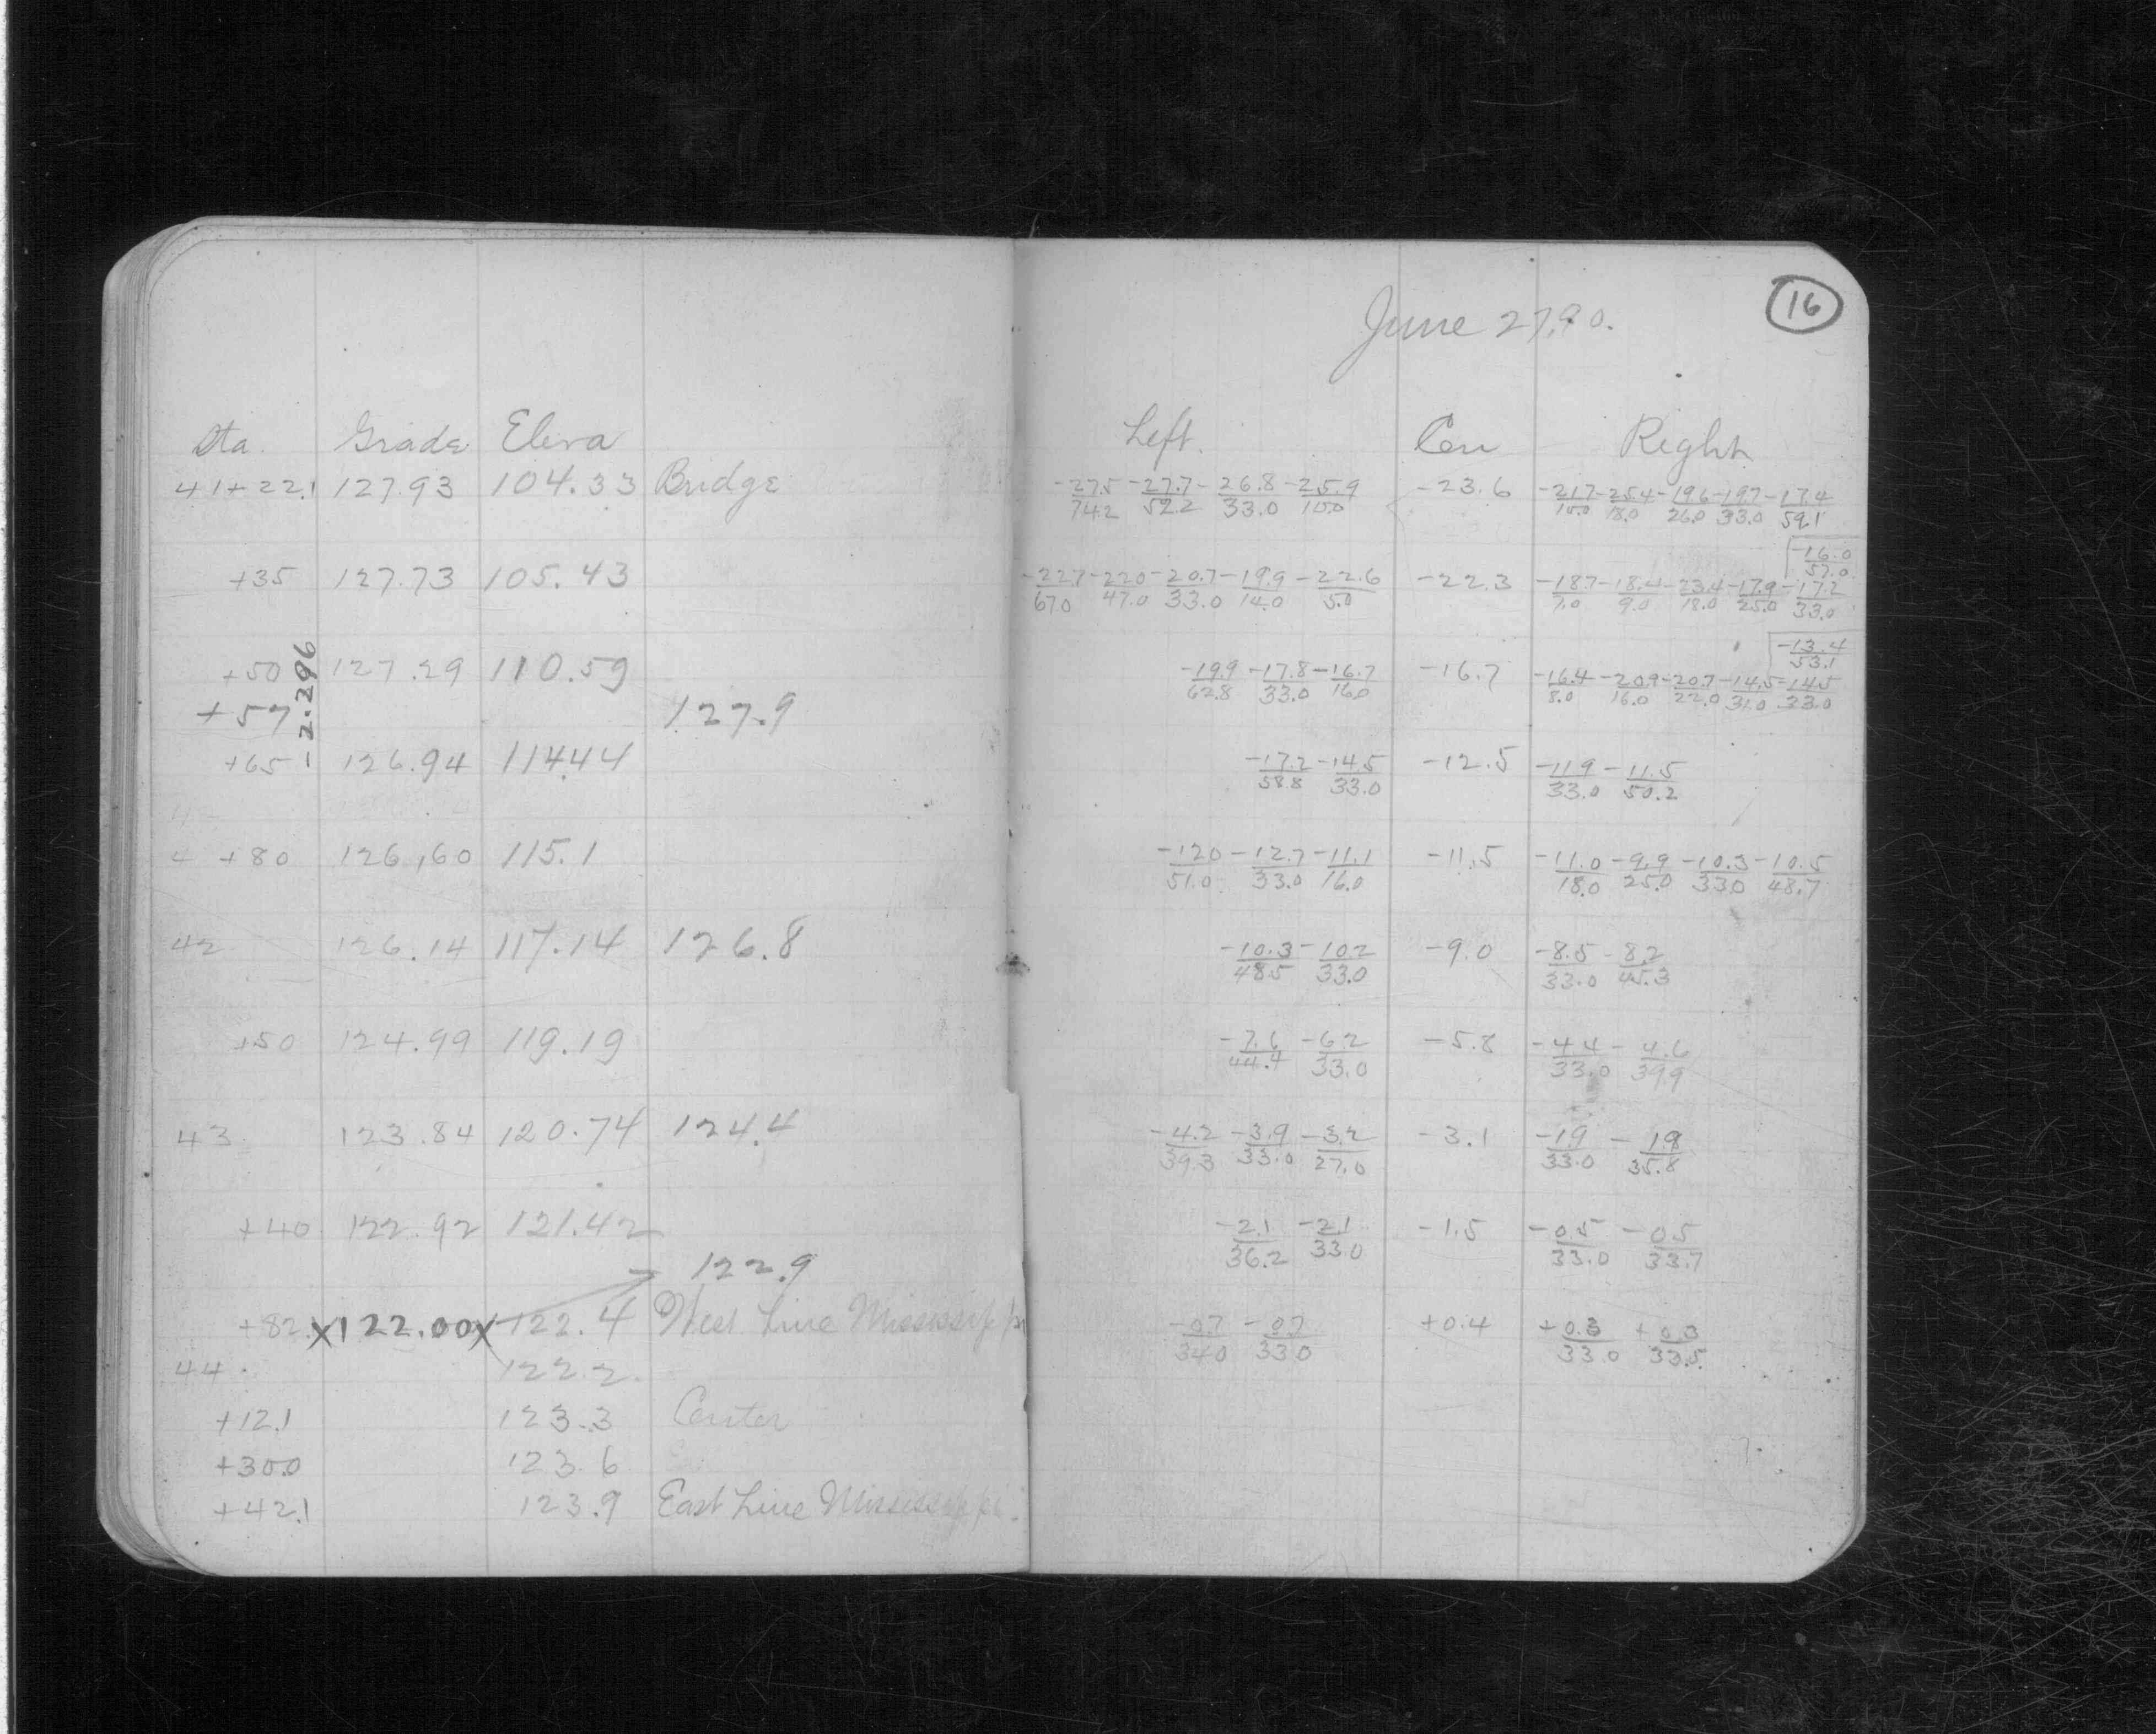 16
June 27, 90.
Sta. Grade Eleva Left. Cen Right
41+22.1 127.93 104.33 Bridge -27.5/74.2 -27.7/52.2 -26.8/33.0 -25.9/10.0 -23.6 -21.7/10.0 -25.4/18.0 -19.6/26.0 -19.7/33.0 -17.4/59.1
-16.0/57.0
+35 127.73 105.43 -22.7/67.0 -22.0/47.0 -20.7/33.0 -19.9/14.0 -22.6/5.0 -22.3 -18.7/7.0 -18.4/9.0 -23.4/18.0 -17.9/25.0 -17.2/33.0
-13.4/53.1
+50 127.29 110.59 -19.9/62.8 -17.8/33.0 -16.7/16.0 -16.7 -16.4/8.0 -20.9/16.0 -20.7/22.0 -14.5/31.0 -14.5/33.0
+57 127.9
-2.296
+65 126.94 114.44 -17.2/58.8 -14.5/33.0 -12.5 -11.9/33.0 -11.5/50.2
+80 126.60 115.1 -12.0/51.0 -12.7/33.0 -11.1/16.0 -11.5 -11.0/18.0 -9.9/25.0 -10.3/33.0 -10.5/48.7
42 126.14 117.14 126.8 -10.3/48.5 -10.2/33.0 -9.0 -8.5/33.0 -8.2/45.3
+50 124.99 119.19 -7.6/44.4 -6.2/33.0 -5.8 -4.4/33.0 -4.6/39.9
43 123.84 120.74 124.4 -4.2/39.3 -3.9/33.0 -3.2/27.0 -3.1 -1.9/33.0 -1.8/35.8
+40 122.92 121.42 -2.1/36.2 -2.1/33.0 -1.5 -0.5/33.0 -0.5/33.7
122.9
+82 x122.00x 122.4 West Line Mississippi -0.7/34.0 -0.7/33.0 +0.4 +0.3/33.0 +0.3/33.5
44 122.2
+12.1 123.3 Center
+30.0 123.6
+42.1 123.9 East Line Mississippi.